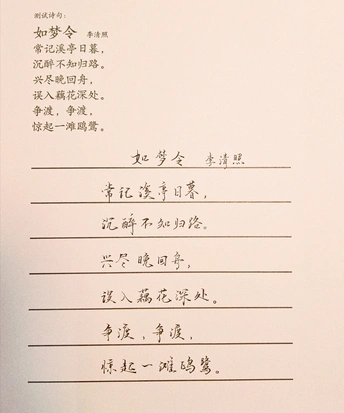 测试诗句:
如梦令 李清照
常记溪亭日暮,
沉醉不知归路。
兴尽晚回舟,
误入藕花深处。
争渡,争渡,
惊起一滩鸥鹭。
如梦令 李清照
常记溪亭日暮,
沉醉不知归路。
兴尽晚回舟,
误入藕花深处。
争渡,争渡,
惊起一滩鸥鹭。